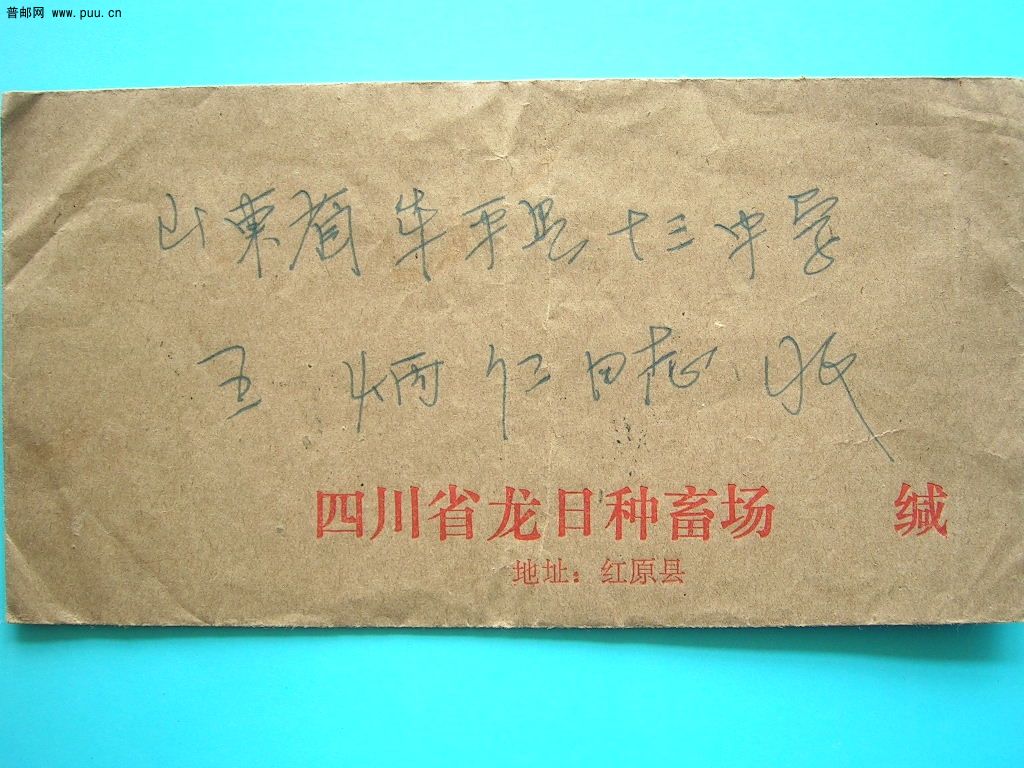 普邮网 www.puu.cn
山東省牟平县十三中学
王炳仁同志收
四川省龙日种畜场 缄
地址：红原县